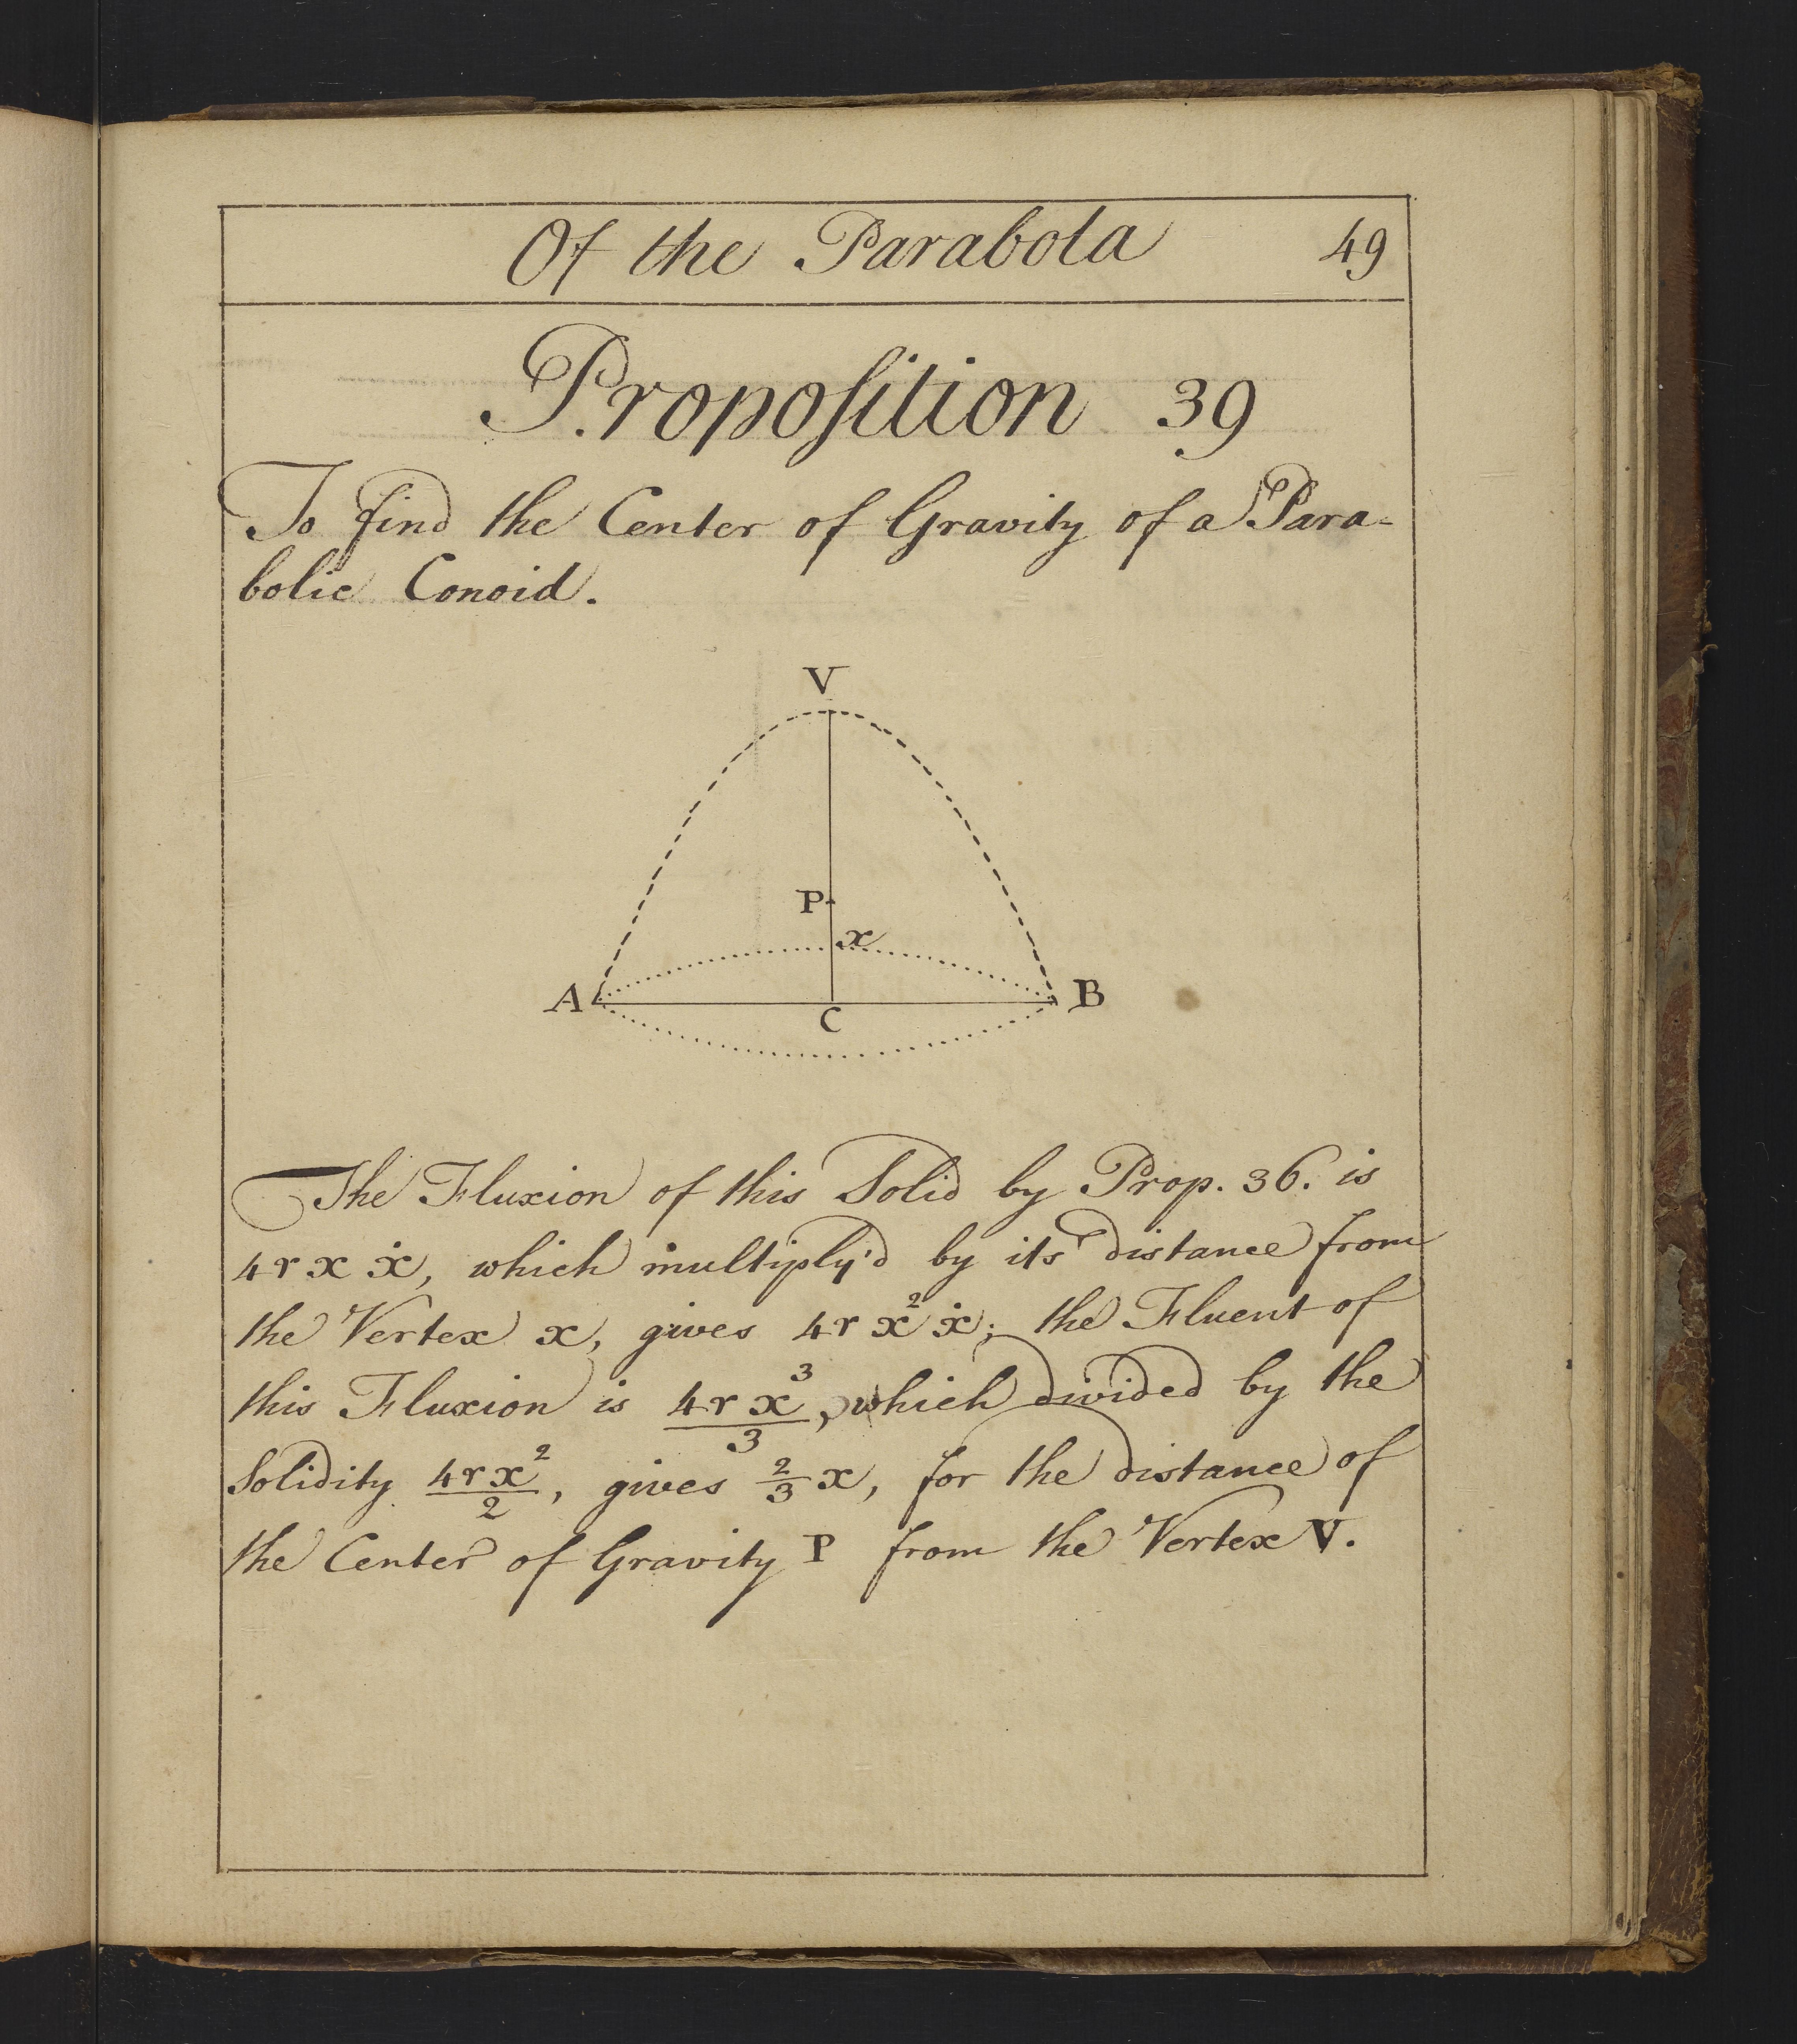 Of the Parabola 49
Propoſition 39
To find the Center of Gravity of a Para-
bolic Conoid.
V
P
x
A C B
The Fluxion of this Solid by Prop. 36. is
4rxẋ, which multiply'd by its distance from
the Vertex x, gives 4rx²ẋ; the Fluent of
this Fluxion is 4rx³/3, which divided by the
Solidity 4rx²/2, gives 2/3 x, for the distance of
the Center of Gravity P from the Vertex V.